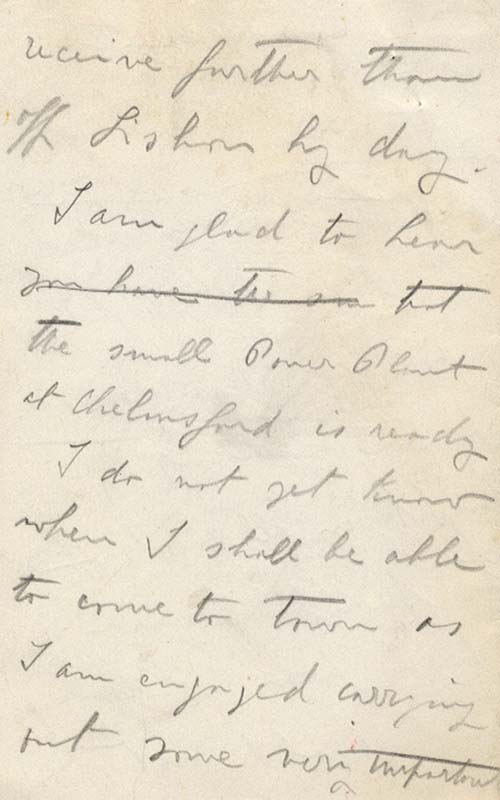 receive further than
off Lisbon by day.
I am glad to hear
you have the sm that
the small Power Plant
at Chelmsford is ready
I do not yet know
when I shall be able
to come to town as
I am engaged carrying
out some very important